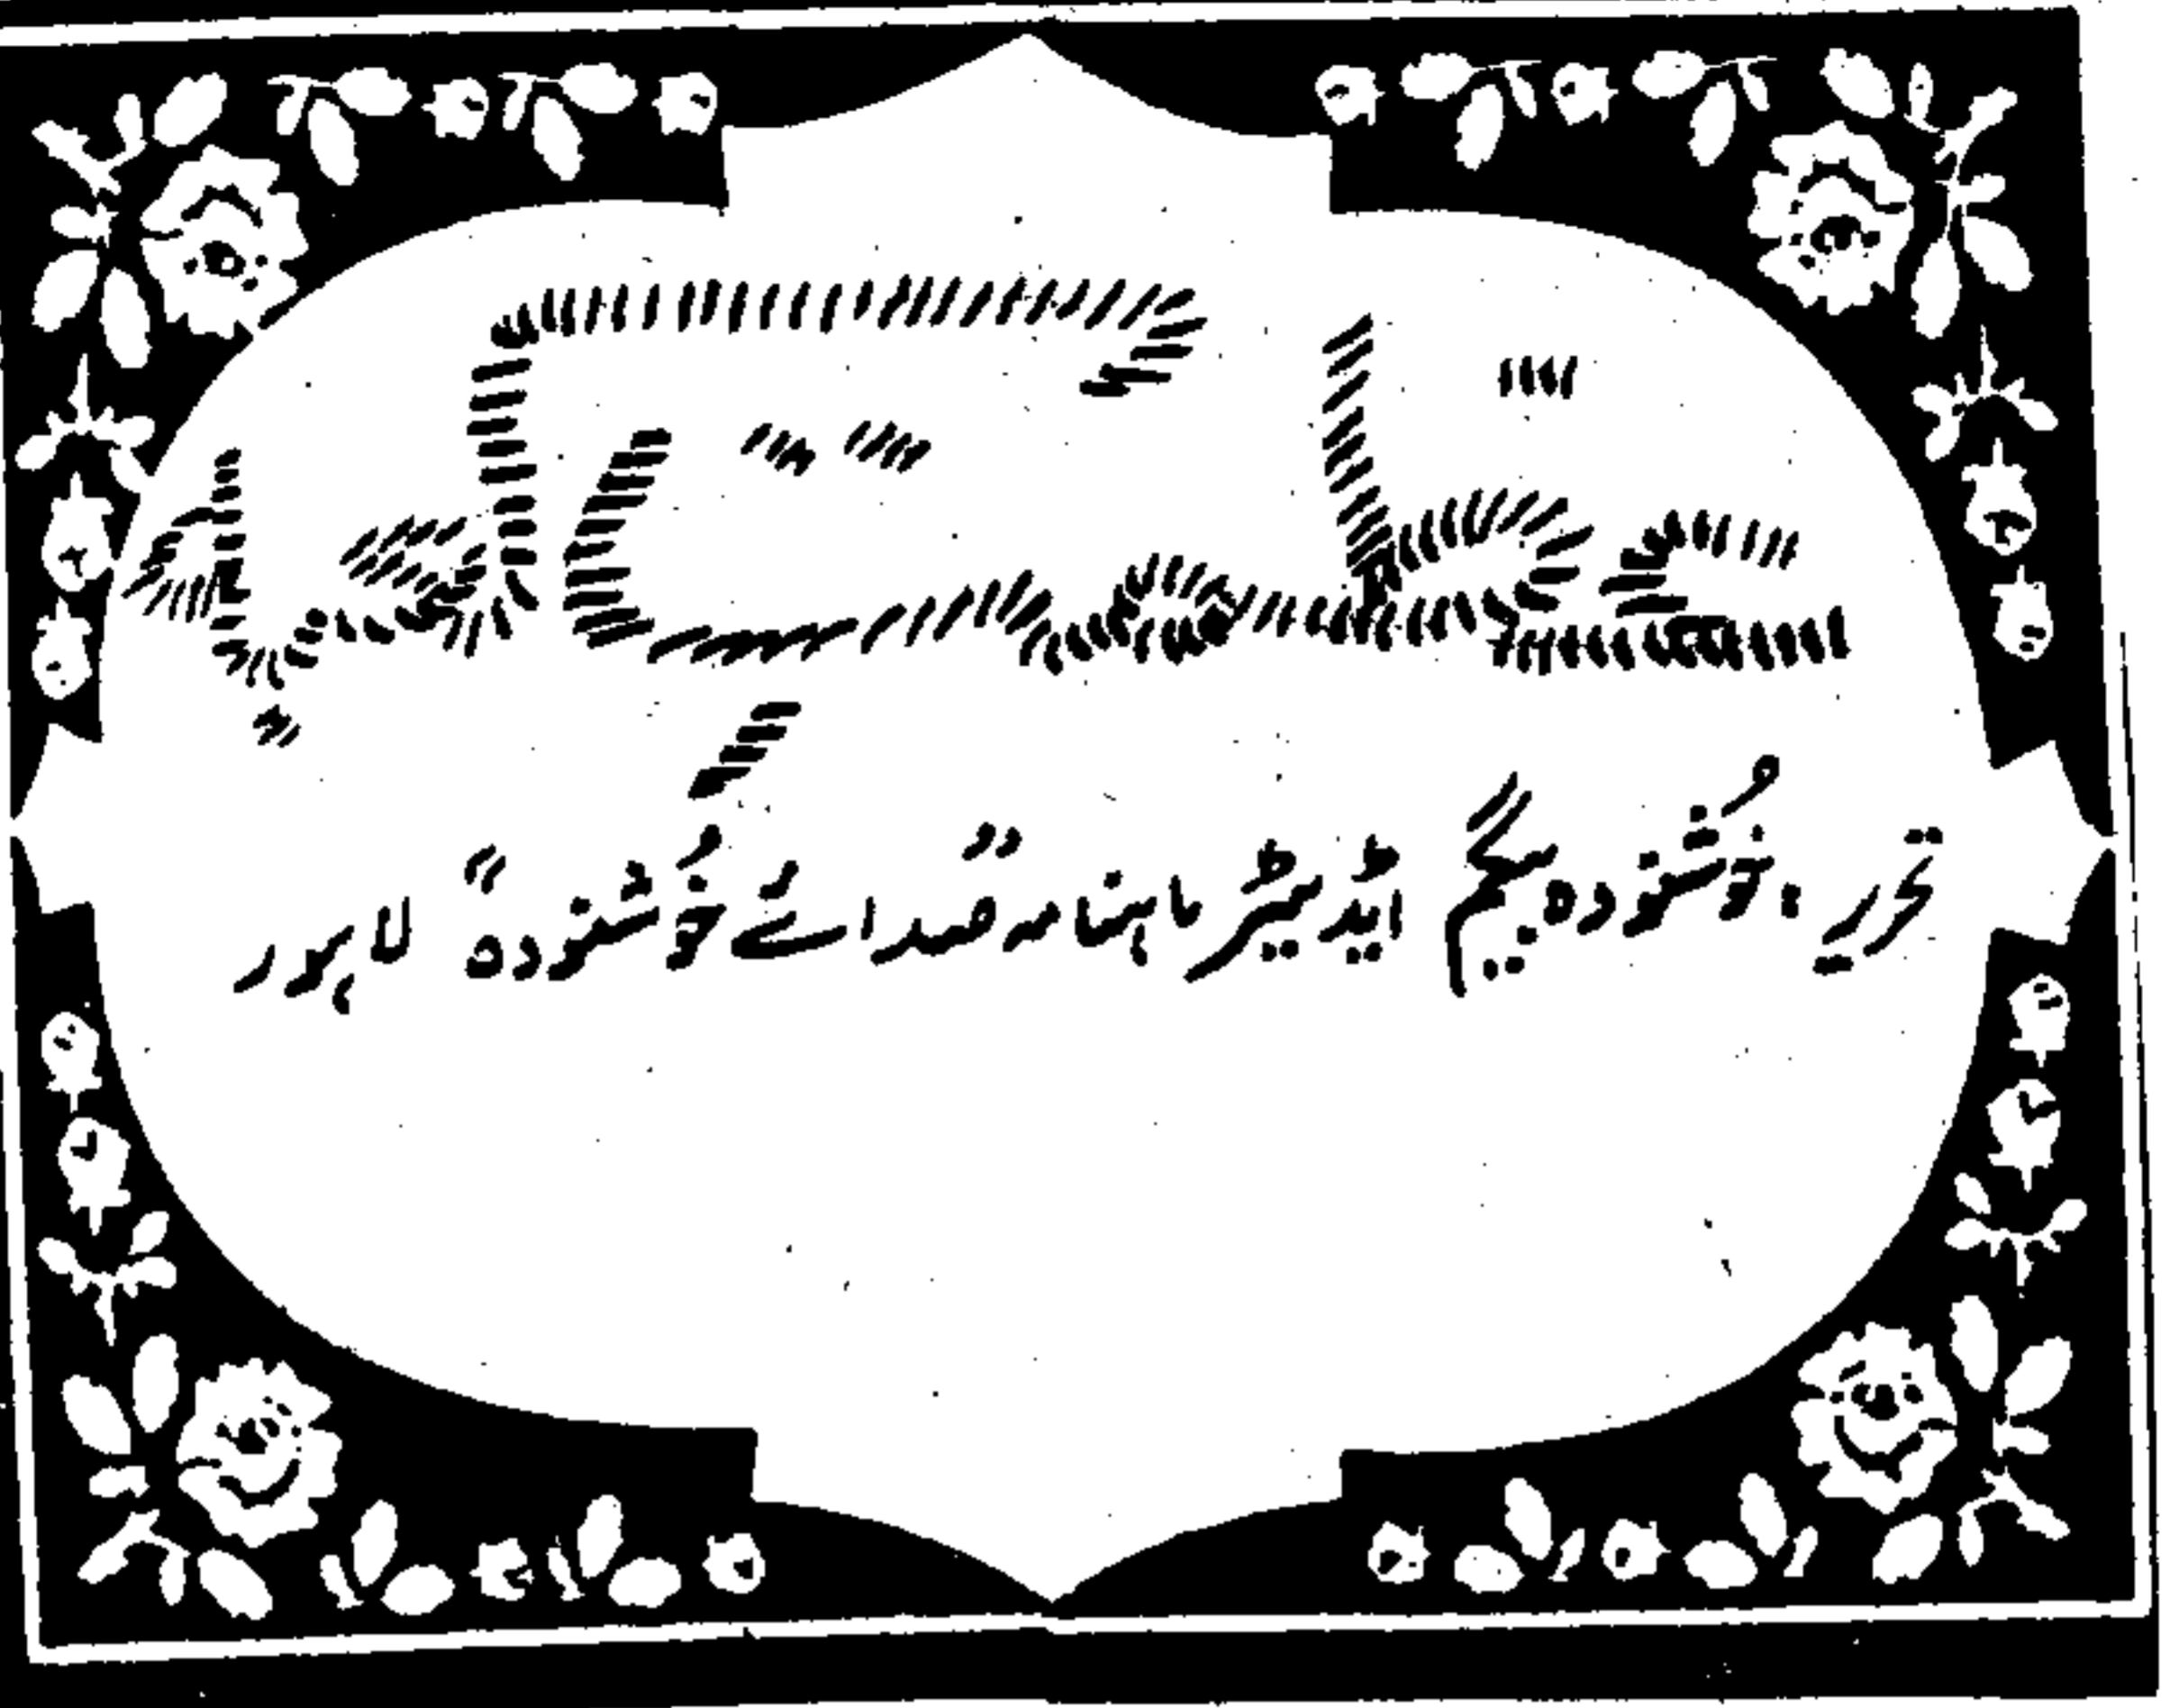 عظمتِ
تحریر: خوشنودہ بیگم ایڈیٹر ماہنامہ "صدائے خوشنودہ" لاہور